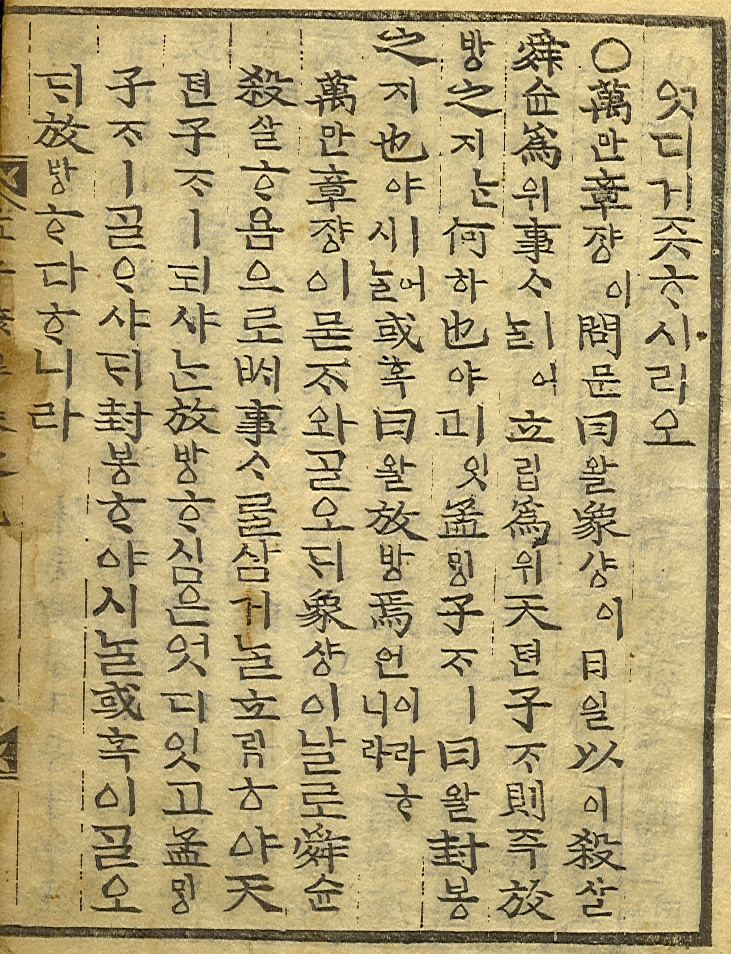 엇디거즛ᄒᆞ시리오
○萬만章쟝이問문曰왈象샹이日일以이殺살
舜슌爲위事ᄉᆞㅣ어늘立립爲위天텬子ᄌᆞ則즉放
방之지ᄂᆞᆫ何하也야ㅣ잇고孟ᄆᆡᆼ子ᄌᆞㅣ曰왈封봉
之지也야ㅣ어시늘或혹曰왈放방焉언이라ᄒᆞ니라
萬만章쟝이묻ᄌᆞ와ᄀᆞᆯ오ᄃᆡ象샹이날로舜슌
殺살ᄒᆞ욤으로ᄡᅥ事ᄉᆞ를삼거늘立립ᄒᆞ야天
텬子ᄌᆞㅣ되샤ᄂᆞᆫ放방ᄒᆞ심은엇디잇고孟ᄆᆡᆼ
子ᄌᆞㅣᄀᆞᆯᄋᆞ샤ᄃᆡ封봉ᄒᆞ야시늘或혹이ᄀᆞᆯ오
ᄃᆡ放방ᄒᆞ다ᄒᆞ니라